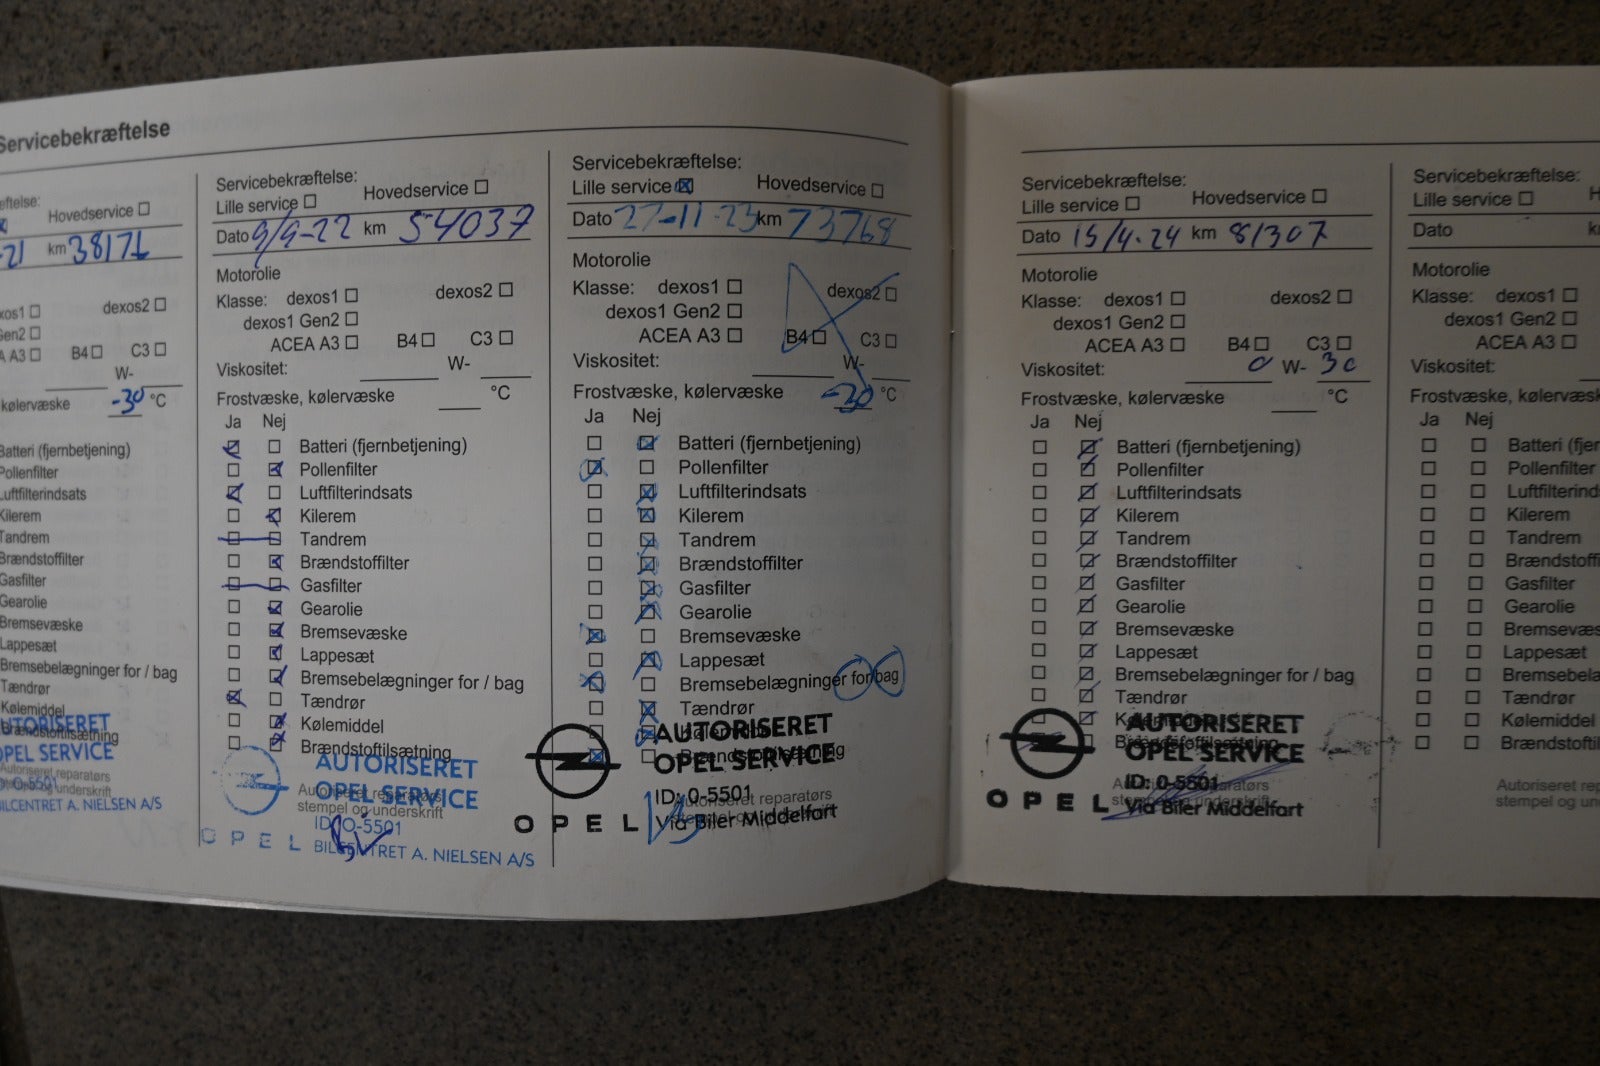 Servicebekræftelse
Hovedservice
km 38171
dexos2
B4 C3
W-
kølervæske -30 °C
Batteri (fjernbetjening)
Pollenfilter
Luftfilterindsats
Kilerem
Tandrem
Brændstoffilter
Gasfilter
Gearolie
Bremsevæske
Lappesæt
Bremsebelægninger for / bag
Tændrør
Kølemiddel
Brændstoftilsætning
AUTORISERET
OPEL SERVICE
Autoriseret reparatørs
BILCENTRET A. NIELSEN A/S
Servicebekræftelse:
Lille service Hovedservice
Dato 9/9-22 km 54037
Motorolie
Klasse: dexos1 dexos2
dexos1 Gen2
ACEA A3 B4 C3
Viskositet: W-
Frostvæske, kølervæske °C
Ja Nej
Batteri (fjernbetjening)
Pollenfilter
Luftfilterindsats
Kilerem
Tandrem
Brændstoffilter
Gasfilter
Gearolie
Bremsevæske
Lappesæt
Bremsebelægninger for / bag
Tændrør
Kølemiddel
Brændstoftilsætning
AUTORISERET
OPEL SERVICE
Autoriseret reparatørs
stempel og underskrift
ID: 0-5501
OPEL BILCENTRET A. NIELSEN A/S
Servicebekræftelse:
Lille service Hovedservice
Dato 27-11-23 km 73768
Motorolie
Klasse: dexos1 dexos2
dexos1 Gen2
ACEA A3 B4 C3
Viskositet: W-
Frostvæske, kølervæske -30 °C
Ja Nej
Batteri (fjernbetjening)
Pollenfilter
Luftfilterindsats
Kilerem
Tandrem
Brændstoffilter
Gasfilter
Gearolie
Bremsevæske
Lappesæt
Bremsebelægninger for/bag
Tændrør
Kølemiddel
Brændstoftilsætning
AUTORISERET
OPEL SERVICE
ID: 0-5501
Autoriseret reparatørs
stempel og underskrift
OPEL Via Biler Middelfart
Servicebekræftelse:
Lille service Hovedservice
Dato 15/4-24 km 81307
Motorolie
Klasse: dexos1 dexos2
dexos1 Gen2
ACEA A3 B4 C3
Viskositet: 0 W- 30
Frostvæske, kølervæske °C
Ja Nej
Batteri (fjernbetjening)
Pollenfilter
Luftfilterindsats
Kilerem
Tandrem
Brændstoffilter
Gasfilter
Gearolie
Bremsevæske
Lappesæt
Bremsebelægninger for / bag
Tændrør
Kølemiddel
Brændstoftilsætning
AUTORISERET
OPEL SERVICE
ID: 0-5501
Autoriseret reparatørs
stempel og underskrift
OPEL Via Biler Middelfart
Servicebekræftelse:
Lille service
Dato
Motorolie
Klasse: dexos1
dexos1 Gen2
ACEA A3
Viskositet:
Frostvæske, kølervæsk
Ja Nej
Batteri (fjer
Pollenfilter
Luftfilterinds
Kilerem
Tandrem
Brændstoffi
Gasfilter
Gearolie
Bremsevæs
Lappesæt
Bremsebela
Tændrør
Kølemiddel
Brændstofti
Autoriseret
stempel og